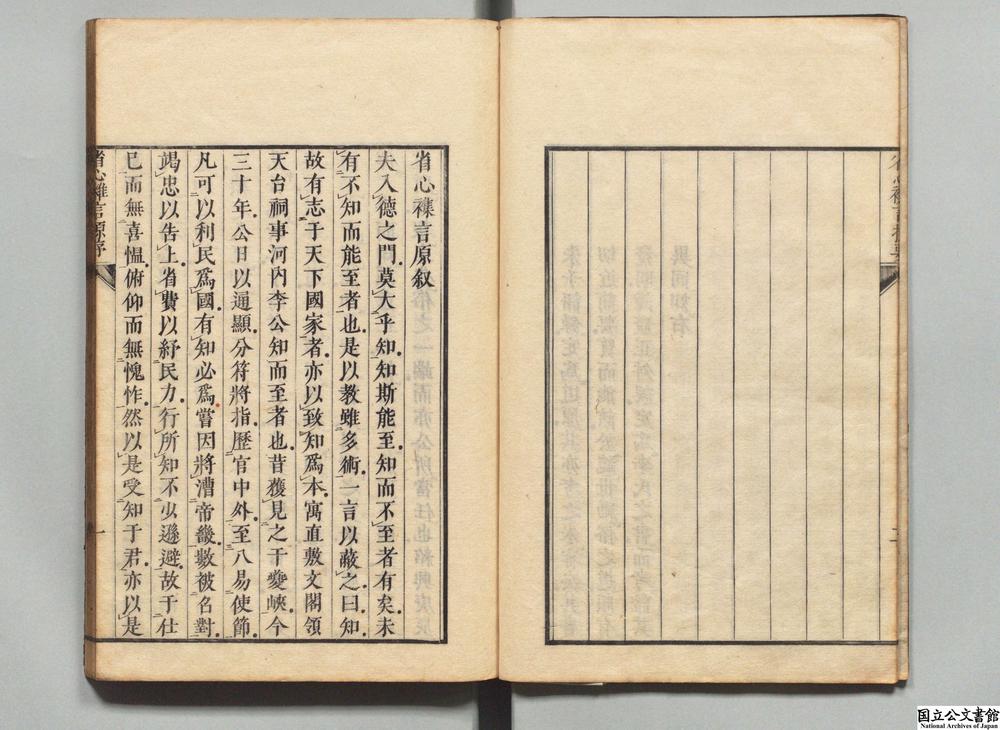 省心襍言原叙
夫入德之門莫大乎知知斯能至知而不至者有矣未
有不知而能至者也是以教雖多術一言以蔽之曰知
故有志于天下國家者亦以致知爲本寓直敷文閣領
天台祠事河內李公知而至者也昔獲見之于夔峽今
三十年公日以通顯分符將指歷官中外至八易使節
凡可以利民爲國有知必爲嘗因將漕帝畿數被名對
竭忠以告上省費以紓民力行所知不少遜避故于仕
巳而無喜慍俯仰而無愧怍然以是受知于君亦以是
省心雜言原序
一
国立公文書館
National Archives of Japan